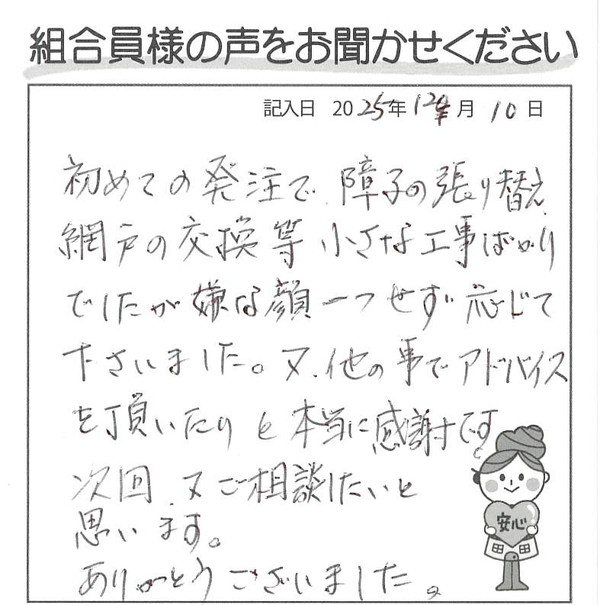 組合員様の声をお聞かせください
記入日 2025年12月10日
初めての発注で 障子の張り替え
網戸の交換等 小さな工事ばかり
でしたが嫌な顔一つせず 応じて
下さいました。又、他の事でアドバイス
を頂いたりと本当に感謝です。
次回、又ご相談したいと
思います。
ありがとうございました。
安心